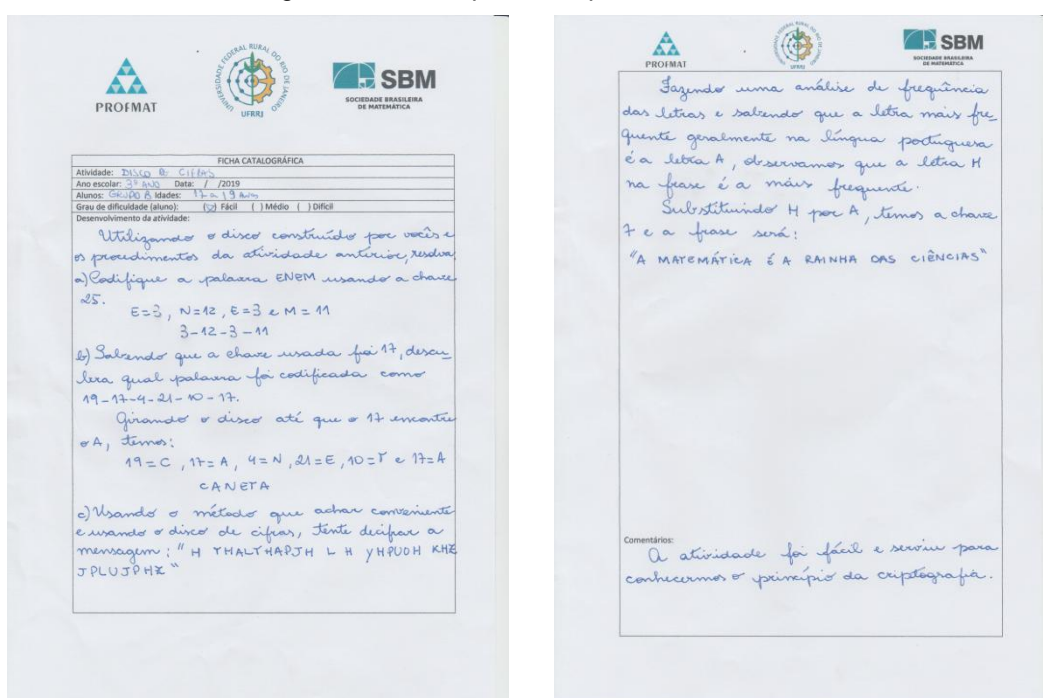 PROFMAT
UNIVERSIDADE FEDERAL RURAL DO RIO DE JANEIRO
UFRRJ
SBM
SOCIEDADE BRASILEIRA
DE MATEMÁTICA
FICHA CATALOGRÁFICA
Atividade: DISCO DE CIFRAS
Ano escolar: 3º ANO Data: / /2019
Alunos: GRUPO B Idades: 17 a 19 Anos
Grau de dificuldade (aluno): (x) Fácil ( ) Médio ( ) Difícil
Desenvolvimento da atividade:
Utilizando o disco construído por vocês e
os procedimentos da atividade anterior, resolva:
a) Codifique a palavra ENEM usando a chave
25.
E=3, N=12, E=3 e M=11
3-12-3-11
b) Sabendo que a chave usada foi 17, descu-
bra qual palavra foi codificada como
19-17-4-21-10-17.
Girando o disco até que o 17 encontre
o A, temos:
19=C, 17=A, 4=N, 21=E, 10=T e 17=A
CANETA
c) Usando o método que achar conveniente
e usando o disco de cifras, tente decifrar a
mensagem: "H THALTHAPJH L H YHPUOH KHZ
JPLUJPHZ"
PROFMAT
UFRRJ
SBM
SOCIEDADE BRASILEIRA
DE MATEMÁTICA
Fazendo uma análise de frequência
das letras e sabendo que a letra mais fre-
quente geralmente na língua portuguesa
é a letra A, observamos que a letra H
na frase é a mais frequente.
Substituindo H por A, temos a chave
7 e a frase será:
"A MATEMÁTICA É A RAINHA DAS CIÊNCIAS"
Comentários:
A atividade foi fácil e serviu para
conhecermos o princípio da criptografia.